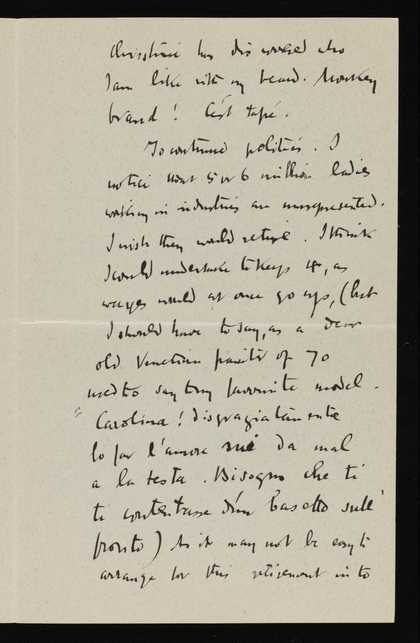 Christine has discovered who
I am like with my beard. Monkey
brand! C'est tapé.
To continue politics. I
notice that 5 or 6 million ladies
working in industries are unrepresented.
I wish they would retire. I think
I could undertake to keep 18, as
wages would at once go up, (but
I should have to say, as a dear
old Venetian painter of 70
used to say to my favourite model.
"Carolina! disgraziatamente
lo far l'amore me da mal
a la testa. Bisogna che ti
ti contentasse d'un basetto sull'
fronte) As it may not be easy to
arrange for this retirement into